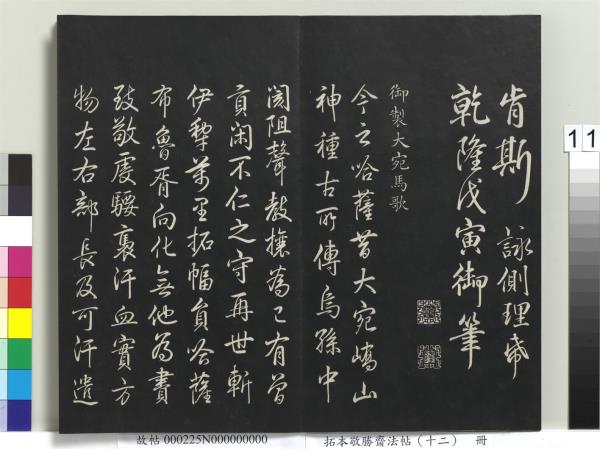 肯斯 詠側理帋
乾隆戊寅御筆
御製大宛馬歌
今之哈薩昔大宛嶠山
神種古所傳烏孫中
閡阻聲教攘為己有曾
貢閑不仁之守再世斬
伊犂萬里拓幅員哈薩
布魯胥向化無他為贄
致敬虔騕褭汗血實方
物左右部長及可汗遣
故帖 000225N000000000 拓本敬勝齋法帖（十二） 冊
11